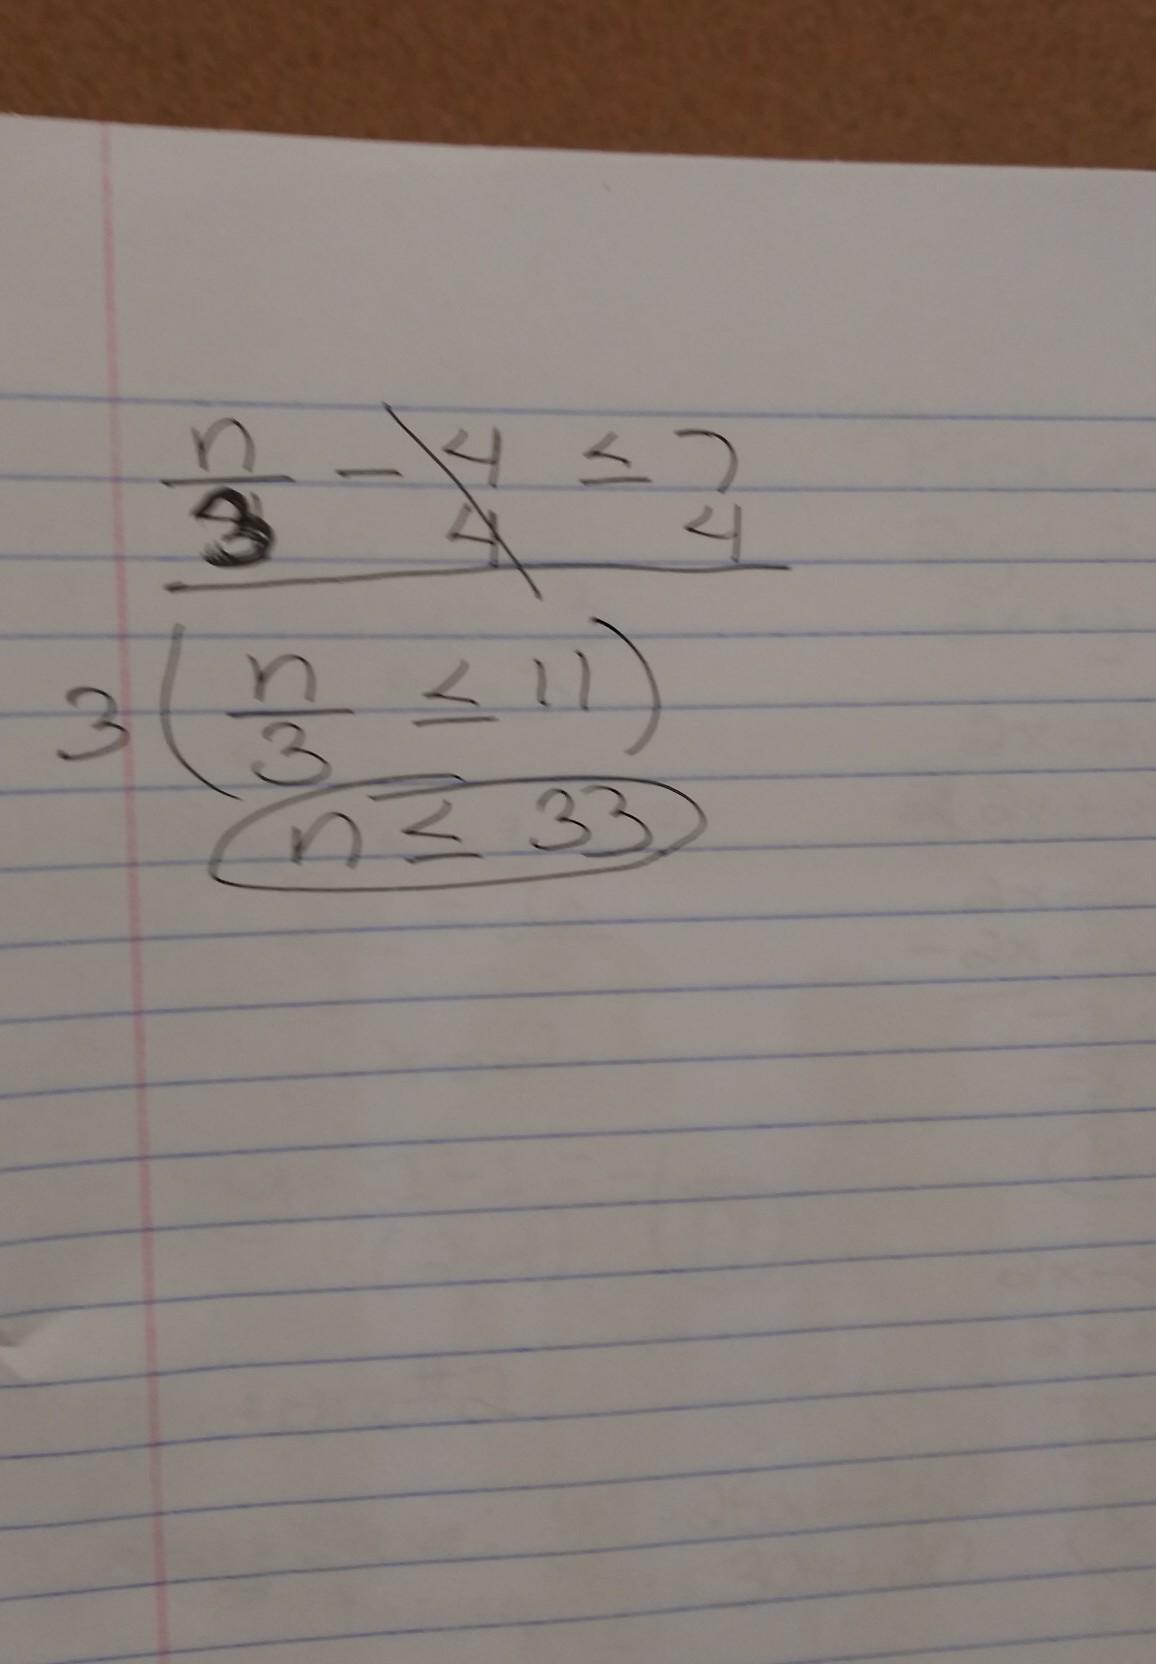 n/3 - 4 ≤ 7
4 4
3 (n/3 ≤ 11)
n ≤ 33